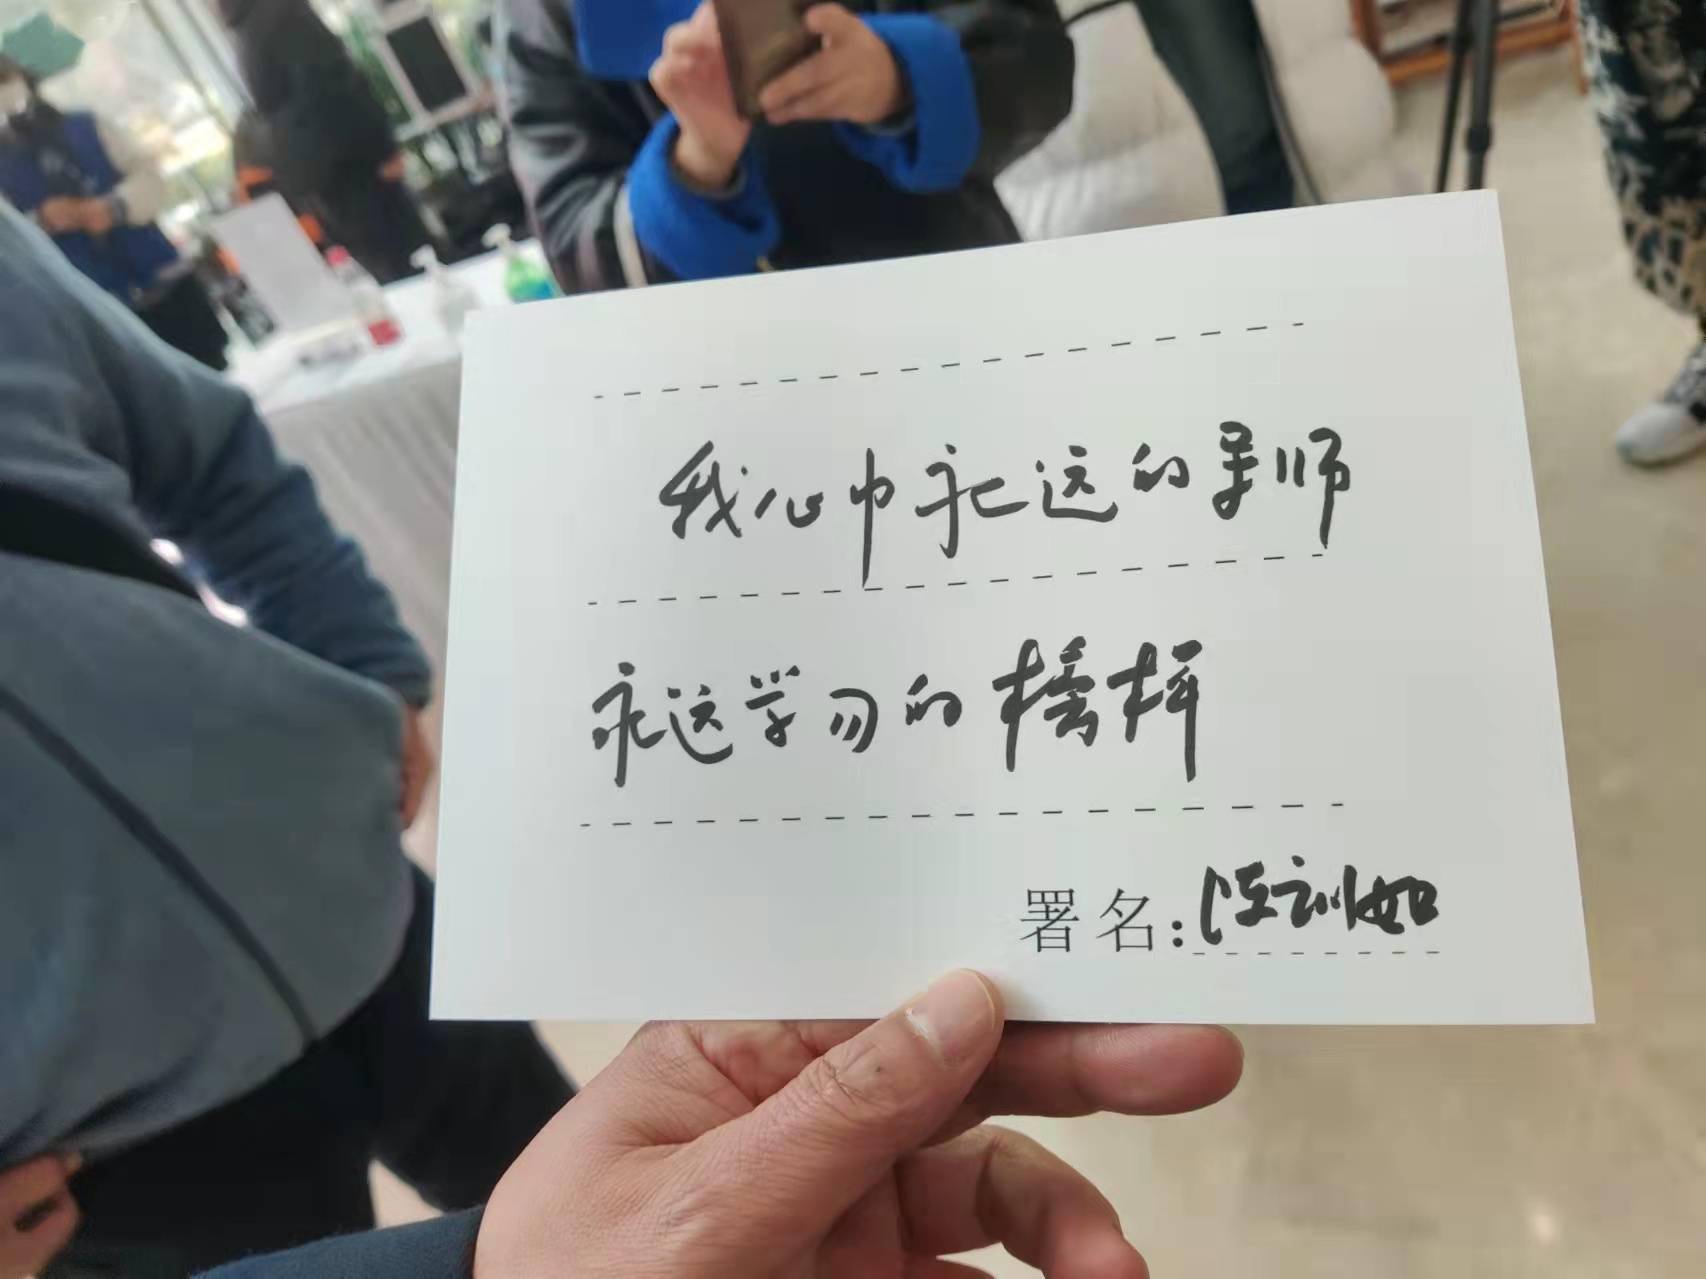 我心中永远的导师
永远学习的榜样
署名：汪训如